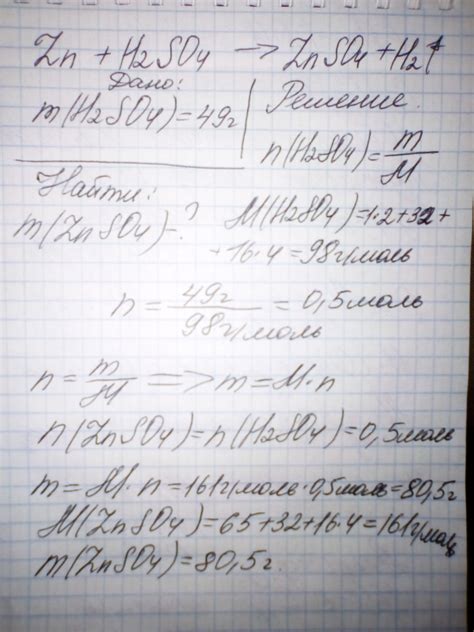 Zn + H2SO4 → ZnSO4 + H2↑
Дано:
m(H2SO4) = 49г
Решение.
n(H2SO4) = m/M
Найти:
m(ZnSO4) - ?
M(H2SO4) = 1·2+32+
+16·4 = 98г/моль
n = 49г/98г/моль = 0,5моль
n = m/M => m = M·n
n(ZnSO4) = n(H2SO4) = 0,5моль
m = M·n = 161г/моль·0,5моль = 80,5г
M(ZnSO4) = 65+32+16·4 = 161г/моль
m(ZnSO4) = 80,5г.